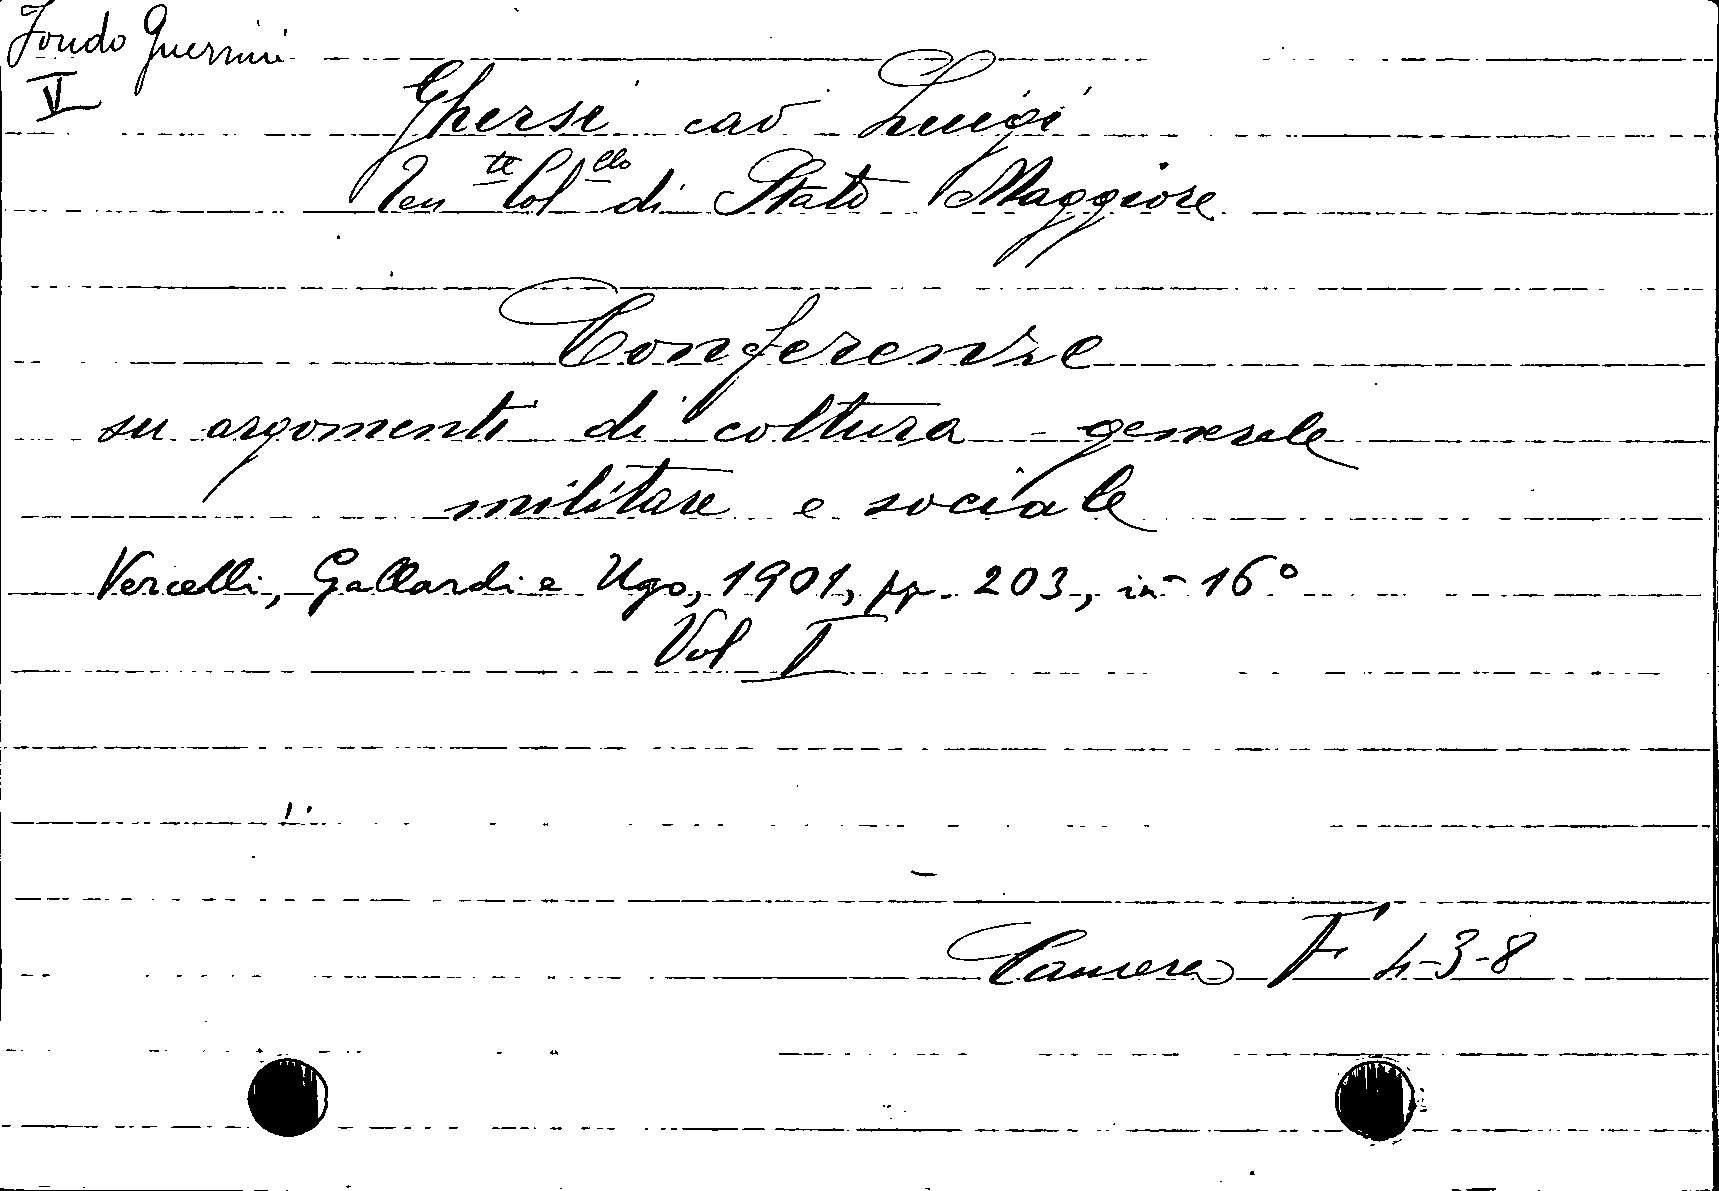 Fondo Guerrini
V
Ghersi cav Luigi
Ten te Col ello di Stato Maggiore
Conferenze
su argomenti di coltura generale
militare e sociale
Vercelli, Gallardi e Ugo, 1901, pp. 203, in-16°
Vol I
Camera F 4-3-8